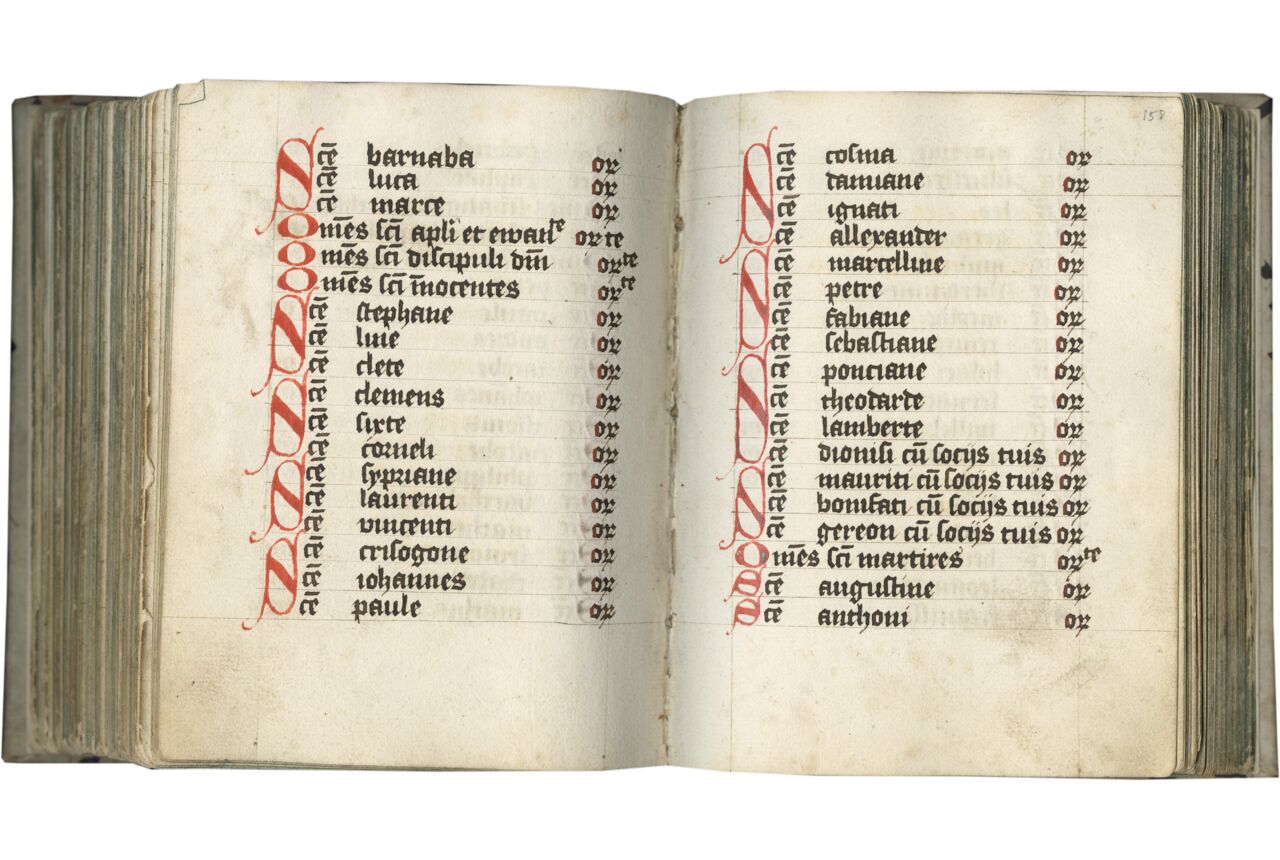 Scē barnaba or
Scē luca or
Scē marce or
Omēs scī apli et ewanᵗᵉ or te
Omēs scī discipuli dnī orᵗᵉ
Omēs scī īnocentes orᵗᵉ
Scē stephane or
Scē line or
Scē clete or
Scē clemens or
Scē sixte or
Scē corneli or
Scē sypriane or
Scē laurenti or
Scē vincenti or
Scē crisogone or
Scē iohannes or
Scē paule or
158
Scē cosma or
Scē damiane or
Scē ignati or
Scē allexander or
Scē marcelline or
Scē petre or
Scē fabiane or
Scē sebastiane or
Scē ponciane or
Scē theodarde or
Scē lamberte or
Scē dionisi cū socijs tuis or
Scē mauriti cū socijs tuis or
Scē bonifati cū socijs tuis or
Scē gereon cū socijs tuis or
Omēs scī martires orᵗᵉ
Scē augustine or
Scē anthoni or